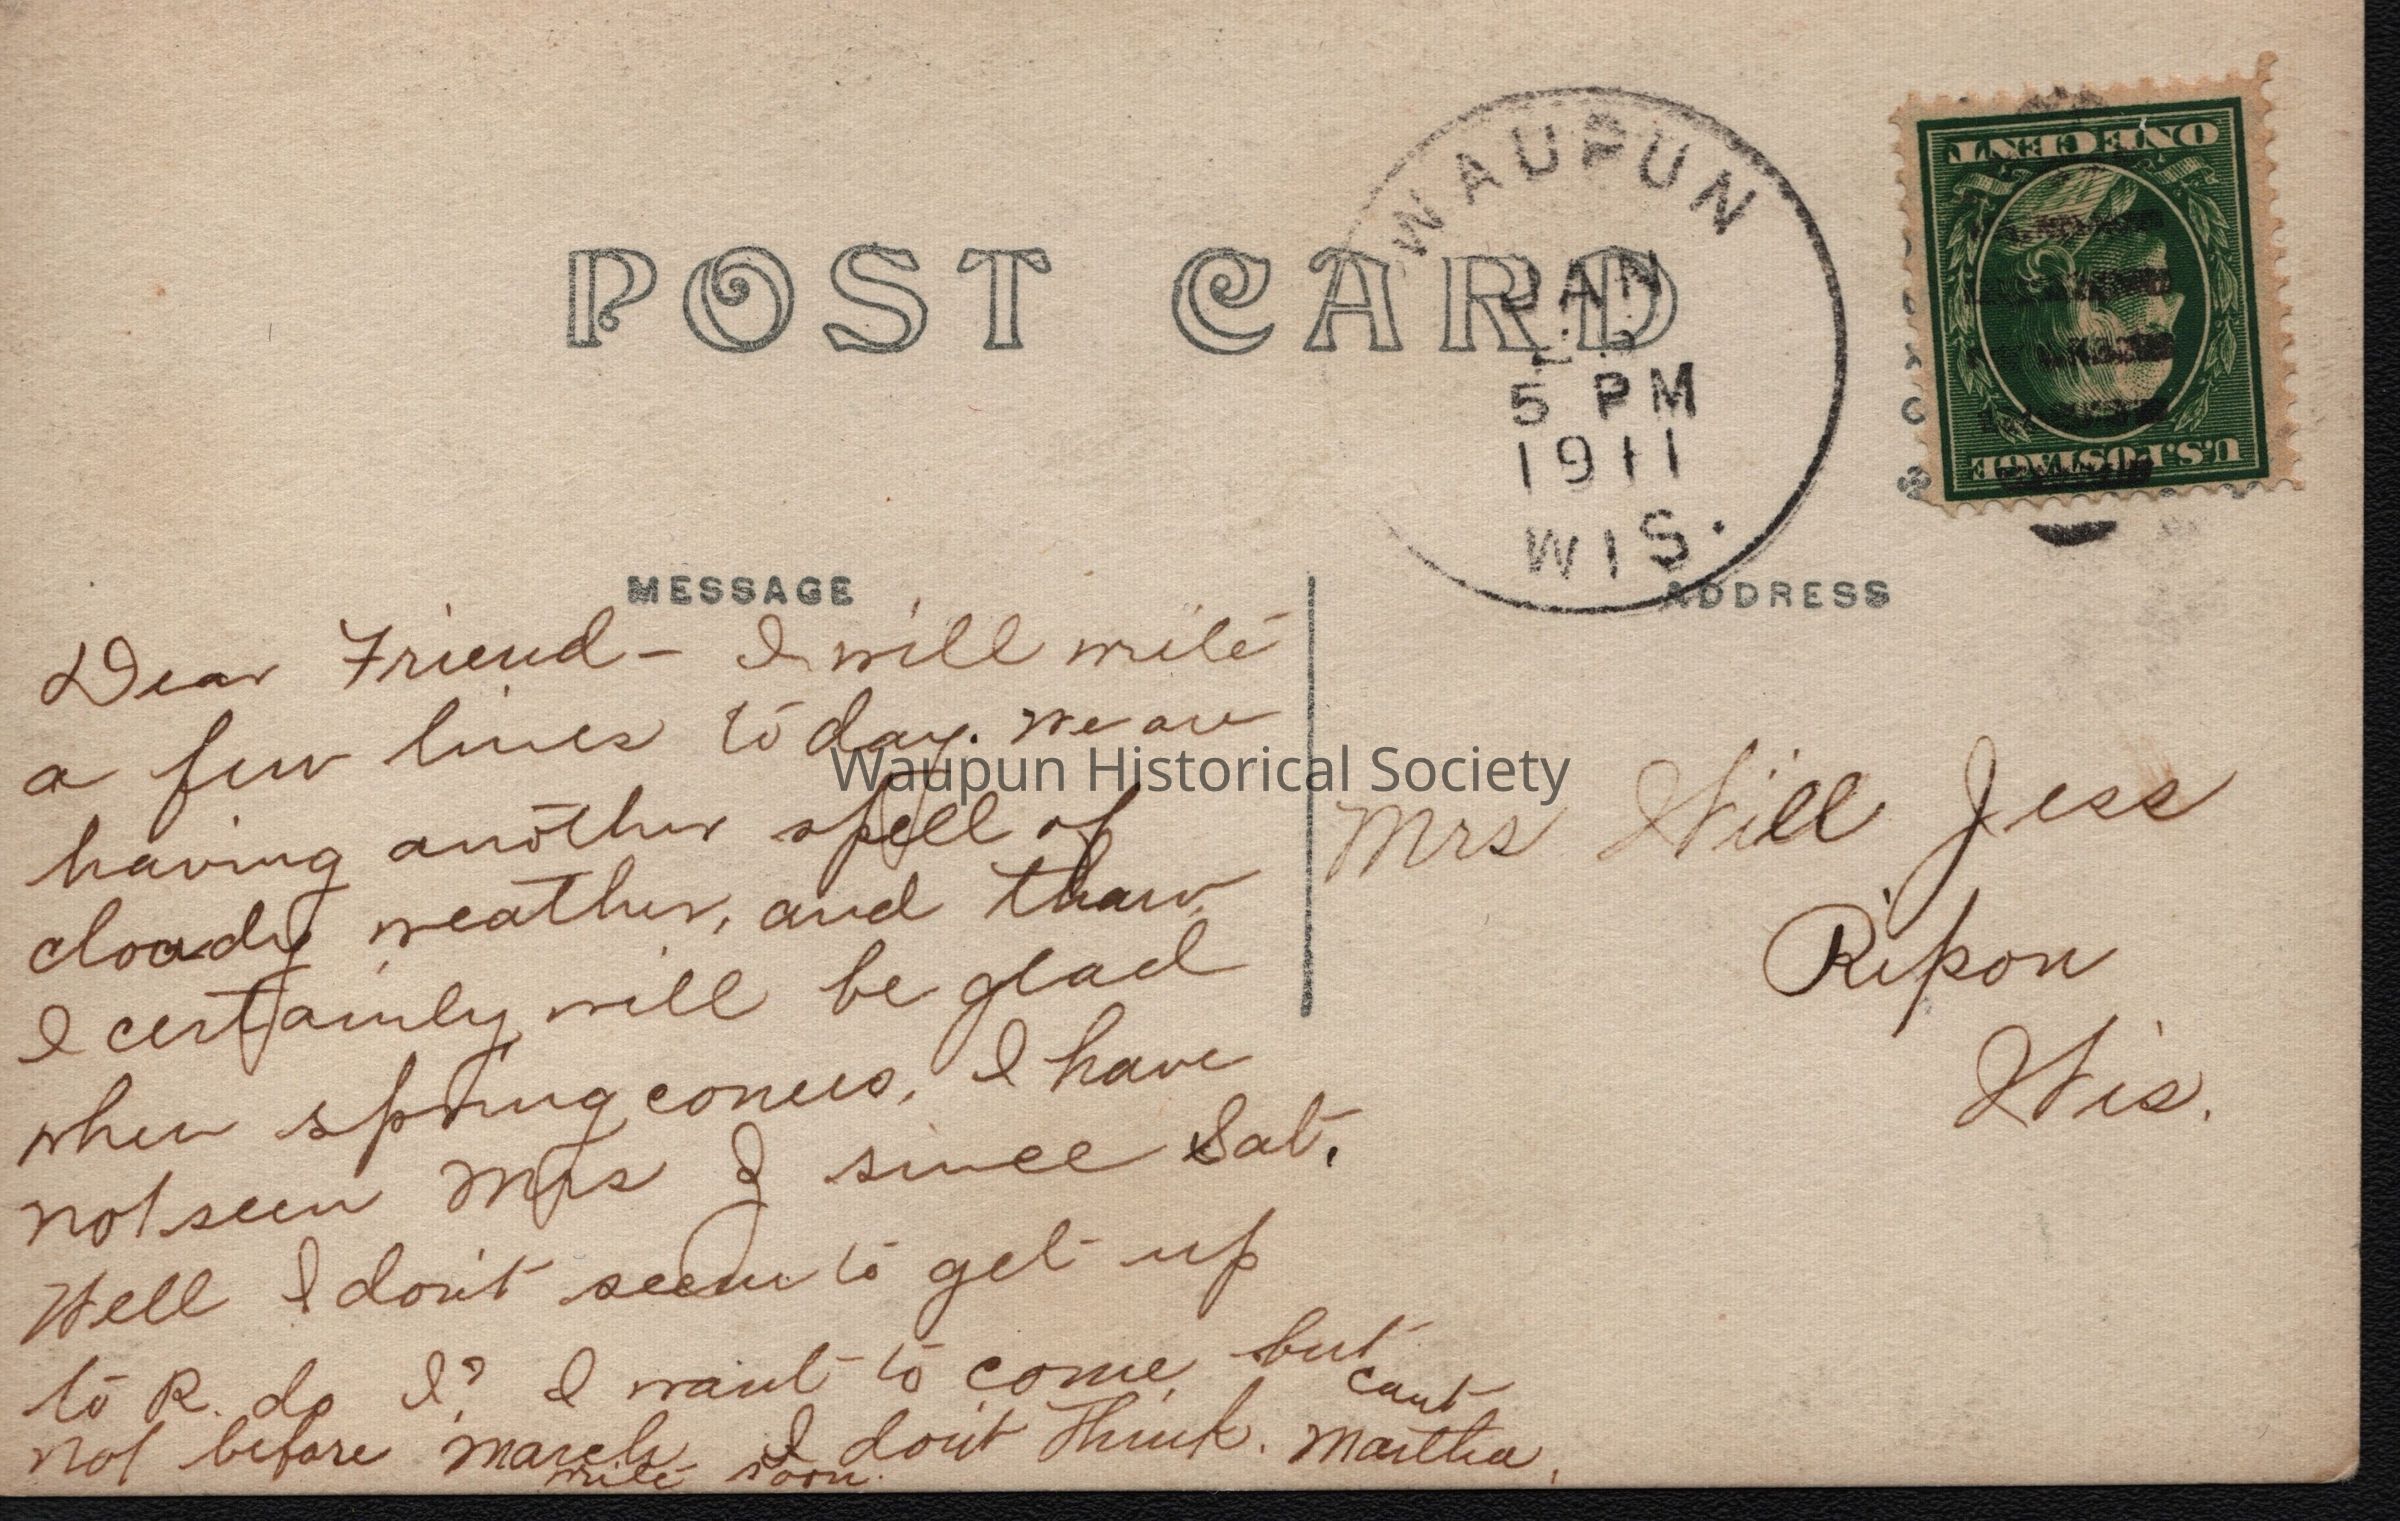 POST CARD
WAUPUN
JAN
5 PM
1911
WIS.
ONE CENT
U.S. POSTAGE
MESSAGE
ADDRESS
Dear Friend - I will write
a few lines today. We are
having another spell of
cloudy weather, and thaw.
I certainly will be glad
when spring comes. I have
not seen Mrs J since Sat.
Well I don't seem to get up
to R. do I? I want to come but
cant
not before March I don't think. Martha.
write soon.
Mrs Will Jess
Ripon
Wis.
Waupun Historical Society